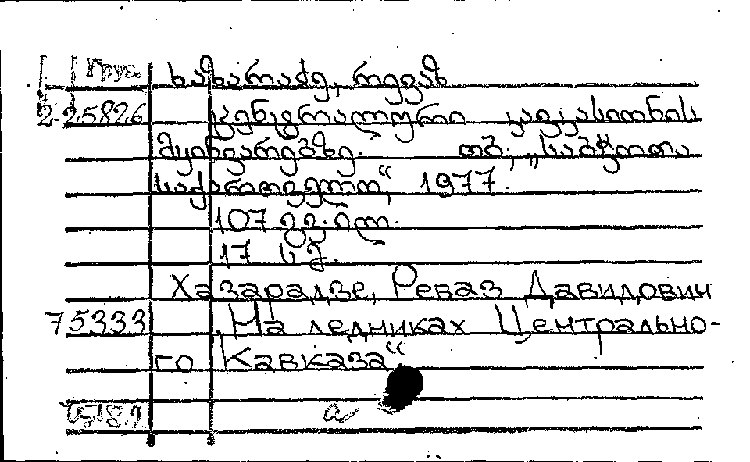 Груз. ხაზარაძე, რევაზ
2-25826 ცენტრალური კავკასიონის
მყინვარებზე. თბ., „საბჭოთა
საქართველო“, 1977.
107 გვ. ილ.
17 სმ.
Хазарадзе, Реваз Давидович
75333 „На ледниках Центрально-
го Кавказа“
а